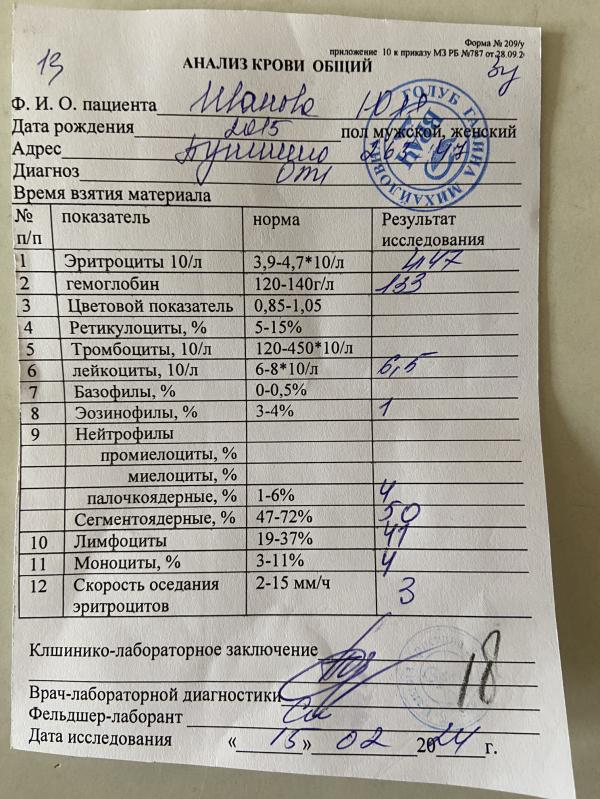 Форма № 209/у
приложение 10 к приказу МЗ РБ №787 от 28.09.2
13
АНАЛИЗ КРОВИ ОБЩИЙ
Ф. И. О. пациента Иванова Юля
Дата рождения 2015 пол мужской, женский
Адрес
Диагноз
Время взятия материала
№ п/п показатель норма Результат исследования
1 Эритроциты 10/л 3,9-4,7*10/л 4,47
2 гемоглобин 120-140г/л 133
3 Цветовой показатель 0,85-1,05
4 Ретикулоциты, % 5-15%
5 Тромбоциты, 10/л 120-450*10/л
6 лейкоциты, 10/л 6-8*10/л 6,5
7 Базофилы, % 0-0,5%
8 Эозинофилы, % 3-4% 1
9 Нейтрофилы
промиелоциты, %
миелоциты, %
палочкоядерные, % 1-6% 4
Сегментоядерные, % 47-72% 50
10 Лимфоциты 19-37% 41
11 Моноциты, % 3-11% 4
12 Скорость оседания 2-15 мм/ч 3
эритроцитов
Клшинико-лабораторное заключение
18
Врач-лабораторной диагностики
Фельдшер-лаборант
Дата исследования « 15 » 02 2024 г.
ГОЛУБ ГАЛИНА МИХАЙЛОВНА
ВРАЧ